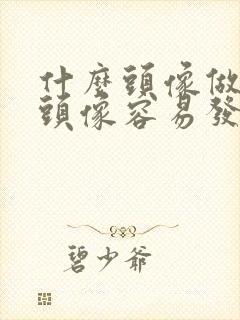 什麼頭像做
頭像容易發
碧少爺